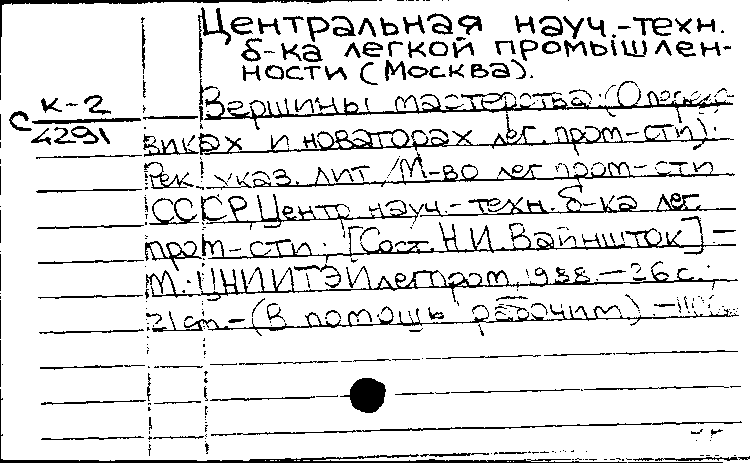 Центральная науч.-техн.
б-ка легкой промышлен-
ности (Москва).
С К-2
4291
Вершины мастерства: (О передо-
виках и новаторах лег. пром-сти):
Рек. указ. лит / М-во лег пром-сти
СССР, Центр. науч.-техн. б-ка лег.
пром-сти; [Сост. Н.И. Вайншток]. -
М.: ЦНИИТЭИлегпром, 1988. - 26 с.;
21 см. - (В помощь рабочим). -